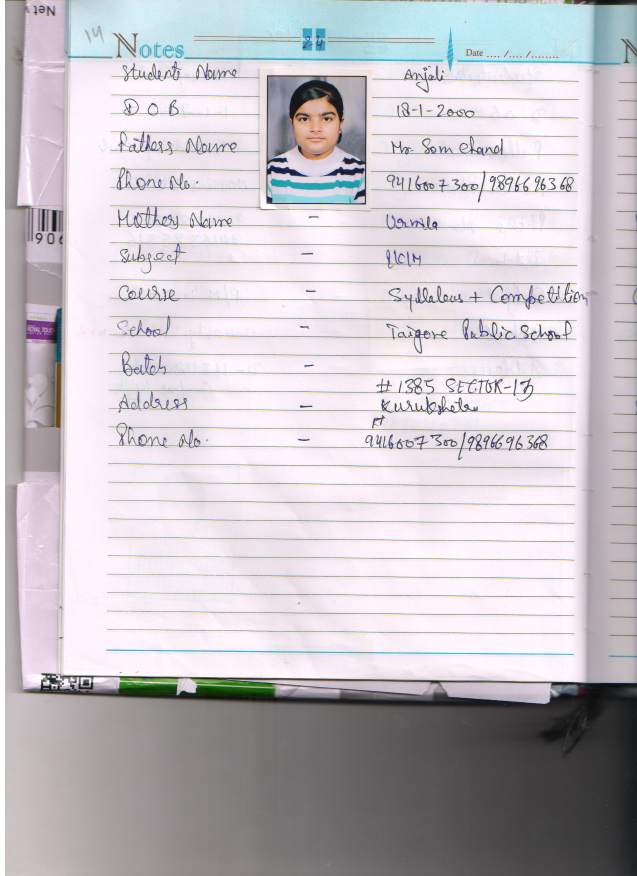 14
Notes 24 Date ..../..../........
Students Name Anjali
D O B 18-1-2000
Fathers Name Mr. Som Chand
Phone No. 9416007300/9896696368
Mothers Name - Urmila
Subject -
Course - Syllabus + Competition
School - Taigore Public School
Batch -
# 1385 SECTOR-13
Address - Kurukshetra
Phone No. - 9416007300/9896696368